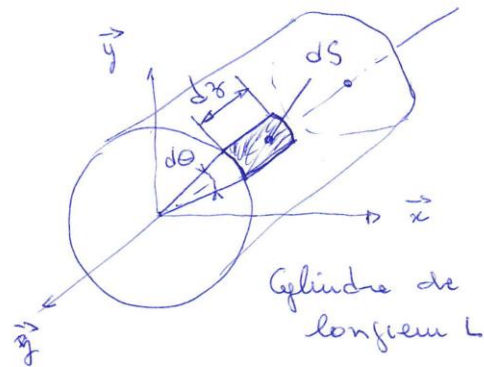 y
dS
dz
dθ
x
Cylindre de
longueur L
z